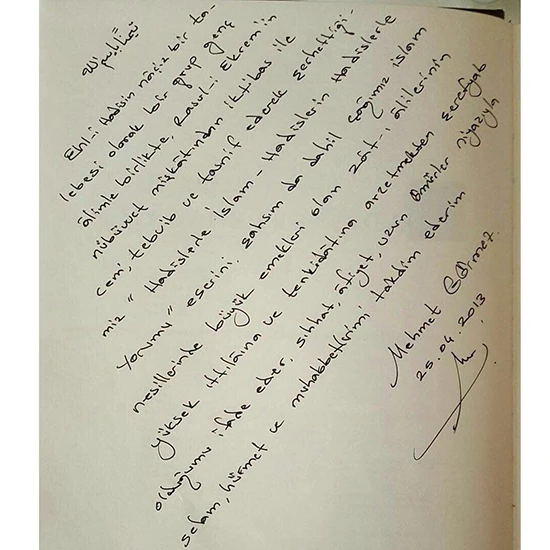 تيمنا بسم الله
Ehl-i Hadisin naçiz bir ta-
lebesi olarak bir grup genç
âlimle birlikte, Rasul-i Ekrem'in
nübüvvet mişkâtından iktibas ile
cem', tebvib ve tasnif ederek şerhettiği-
miz "Hadislerle İslam - Hadislerin Hadislerle
Yorumu" eserini, şahsım da dahil çağımız islam
nesillerinde büyük emekleri olan zât-ı âlilerinin
yüksek ıttılaına ve tenkidâtına arzetmekten şerefyab
olduğumu ifade eder, sıhhat, âfiyet, uzun ömürler niyazıyla
selam, hürmet ve muhabbetlerimi takdim ederim
Mehmet Görmez
25.04.2013